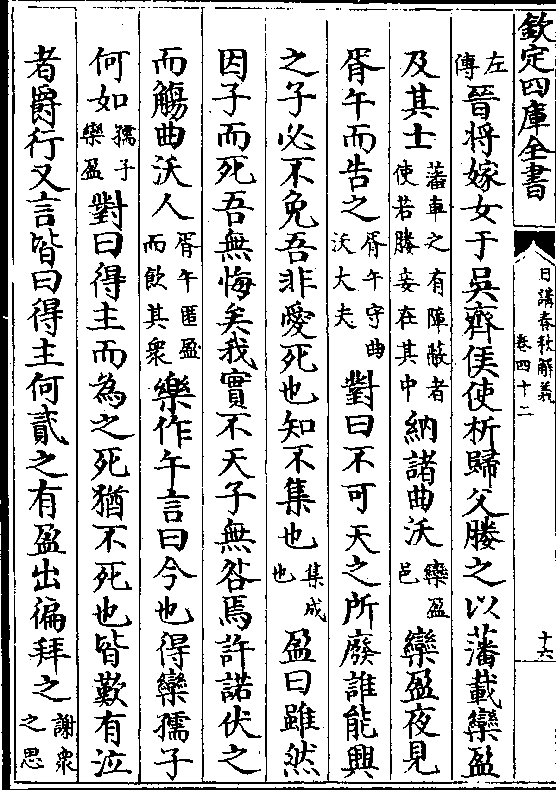 欽定四庫全書
日講春秋解義
卷四十二
十六
左傳晉將嫁女于吳齊侯使析歸父媵之以藩載欒盈
及其士藩車之有障蔽者使若媵妾在其中納諸曲沃欒盈邑欒盈夜見
胥午而告之胥午守曲沃大夫對曰不可天之所廢誰能興
之子必不免吾非愛死也知不集也集成也盈曰雖然
因子而死吾無悔矣我實不天子無咎焉許諾伏之
而觴曲沃人胥午匿盈而飲其衆樂作午言曰今也得欒孺子
何如孺子欒盈對曰得主而為之死猶不死也皆歎有泣
者爵行又言皆曰得主何貳之有盈出徧拜之謝衆之思